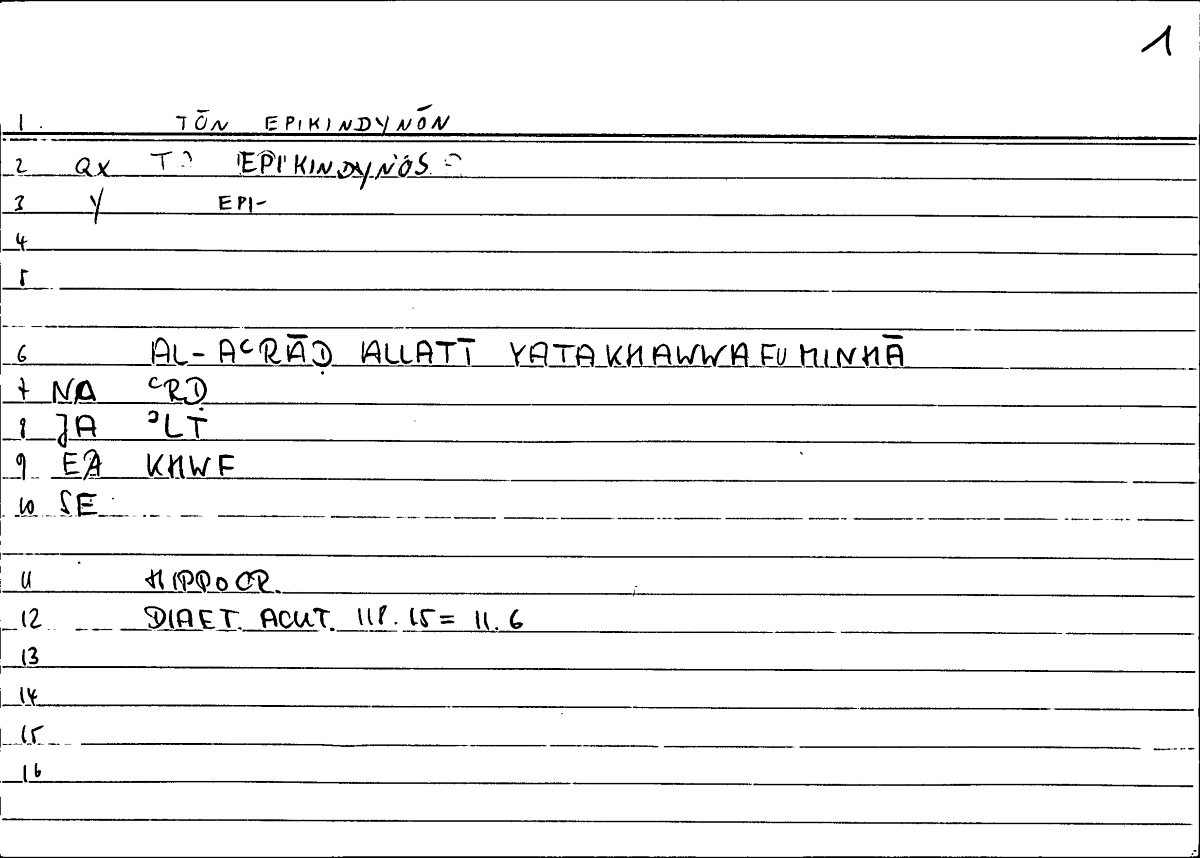 1
1 TŌN EPIKINDYNŌN
2 QX EPIKINDYNOS
3 Y EPI-
4
5
6 AL-AʿRĀḌ ALLATĪ YATAKHAWWAFU MINHĀ
7 NA ʿRḌ
8 JA ʾLT
9 EA KHWF
10 SE
11 HIPPOCR.
12 DIAET. ACUT. 118.15 = 11.6
13
14
15
16